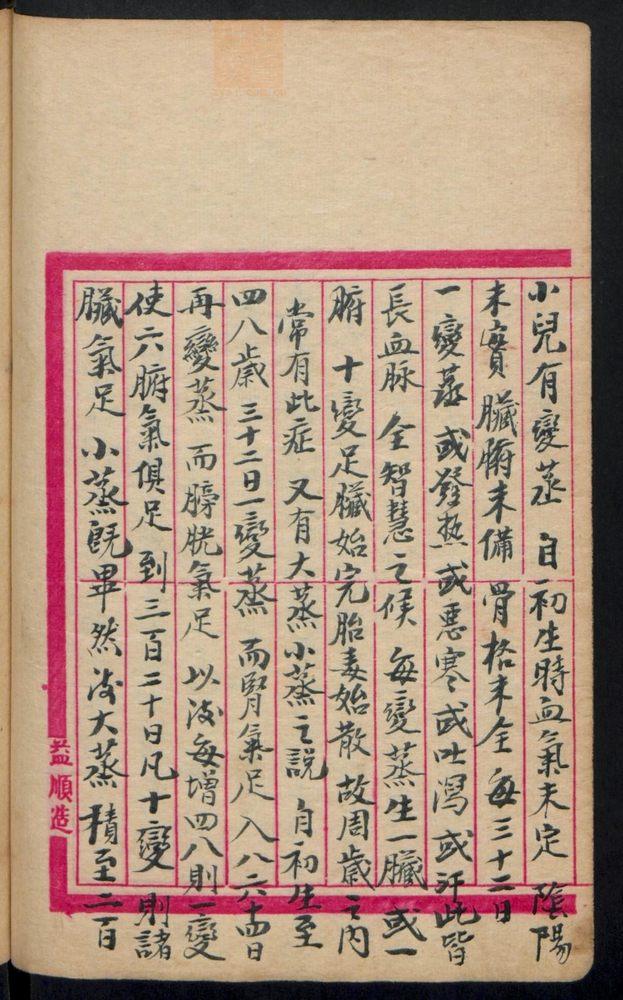 小兒有變蒸 自初生時血氣未定 陰陽
未實 臟腑未備 骨格未全 每三十二日
一變蒸 或發热 或惡寒 或吐瀉 或汗此皆
長血脉 全智慧之候 每變蒸生一臟 或一
腑 十變足臟始完胎毒始散 故周歲之内
常有此症 又有大蒸小蒸之説 自初生至
四八歲 三十二日一變蒸 而腎氣足 入八六十四日
再變蒸 而膀胱氣足 以後每增四八則一變
使六腑氣俱足 到三百二十日凡十變 則諸
臟氣足 小蒸既畢 然後大蒸 積至二百
益順造